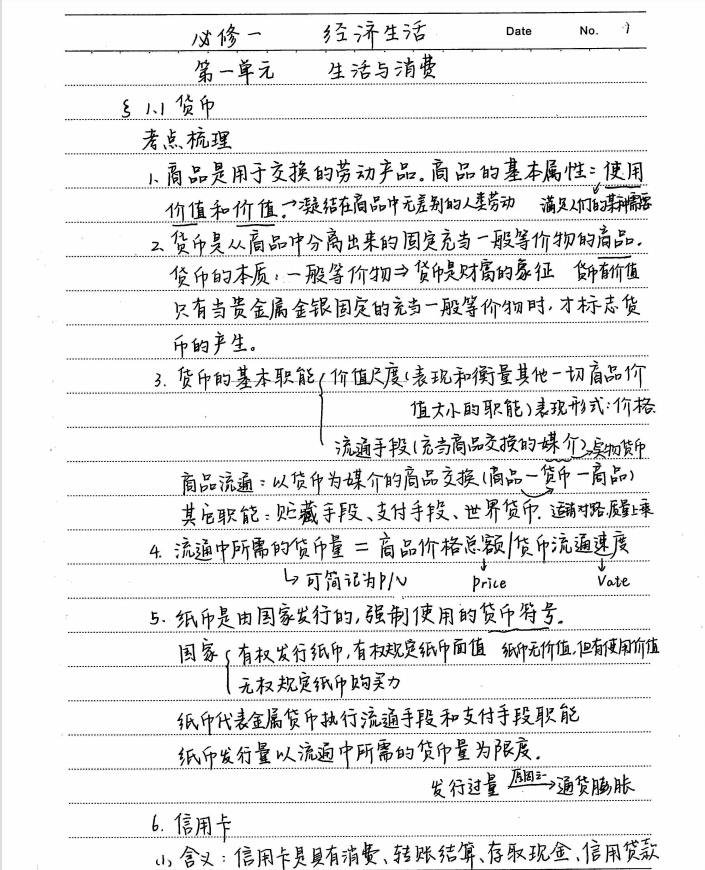 必修一 经济生活 Date No. 1
第一单元 生活与消费
§ 1.1 货币
考点梳理
1. 商品是用于交换的劳动产品。商品的基本属性:使用
价值和价值。→凝结在商品中无差别的人类劳动 满足人们的某种需要
2. 货币是从商品中分离出来的固定充当一般等价物的商品。
货币的本质:一般等价物⇒货币是财富的象征 货币有价值
只有当贵金属金银固定的充当一般等价物时,才标志货
币的产生。
3. 货币的基本职能{价值尺度(表现和衡量其他一切商品价
值大小的职能)表现形式:价格
流通手段(充当商品交换的媒介)→实物货币
商品流通:以货币为媒介的商品交换(商品—货币—商品)
其它职能:贮藏手段、支付手段、世界货币. 适销对路.质量上乘
4. 流通中所需的货币量=商品价格总额/货币流通速度
↳可简记为P/V price Vate
5. 纸币是由国家发行的,强制使用的货币符号。
国家{有权发行纸币,有权规定纸币面值 纸币无价值,但有使用价值
无权规定纸币购买力
纸币代表金属货币执行流通手段和支付手段职能
纸币发行量以流通中所需的货币量为限度。
发行过量 原因之一→通货膨胀
6. 信用卡
(1) 含义:信用卡是具有消费、转账结算、存取现金、信用贷款